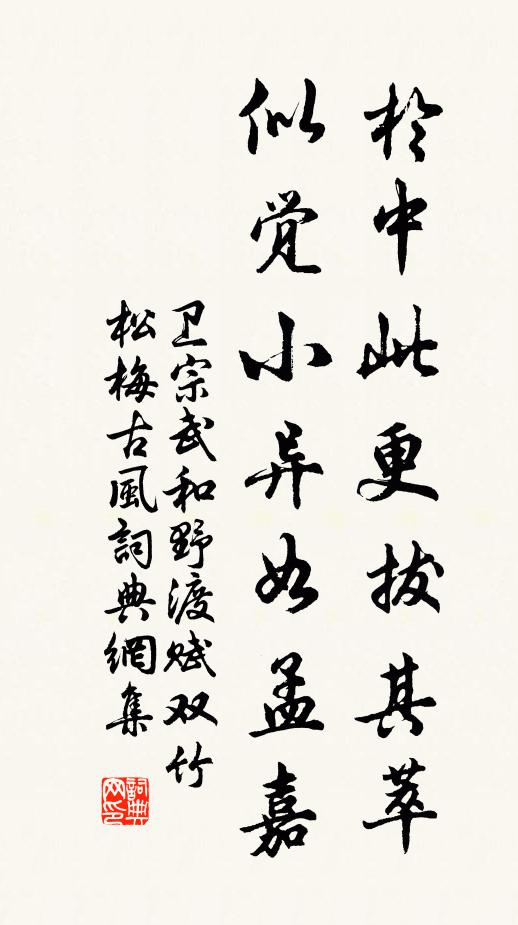 於中此更拔其萃
似觉小异如孟嘉
卫宗武和野渡赋双竹
松梅古風詞典網集
詞典
网印